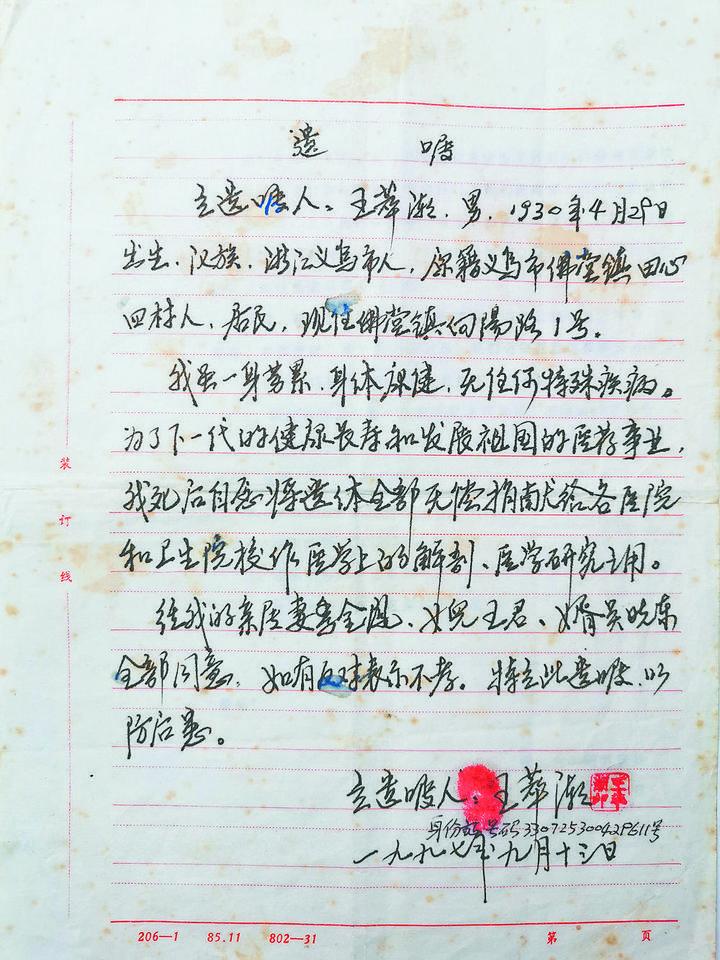 遗 嘱
立遗嘱人：王萍瀨，男，1930年4月29日
出生，汉族，浙江义乌市人，原籍义乌市佛堂镇田心
四村人，居民，现住佛堂镇向陽路1号。
我虽一身劳累，身体康健，无任何特殊疾病。
为了下一代的健康长寿和发展祖国的医药事业，
我死后自愿将遗体全部无偿捐献给各医院
和卫生院校作医学上的解剖、医学研究之用。
经我的亲属妻 金 、女儿王君、婿吴晓东
全部同意，如有反对表示不孝。特立此遗嘱，以
防后患。
立遗嘱人：王萍
身份证号码330725300429611号
一九九七年九月十三日
装
订
线
206—1 85.11 802—31 第 页